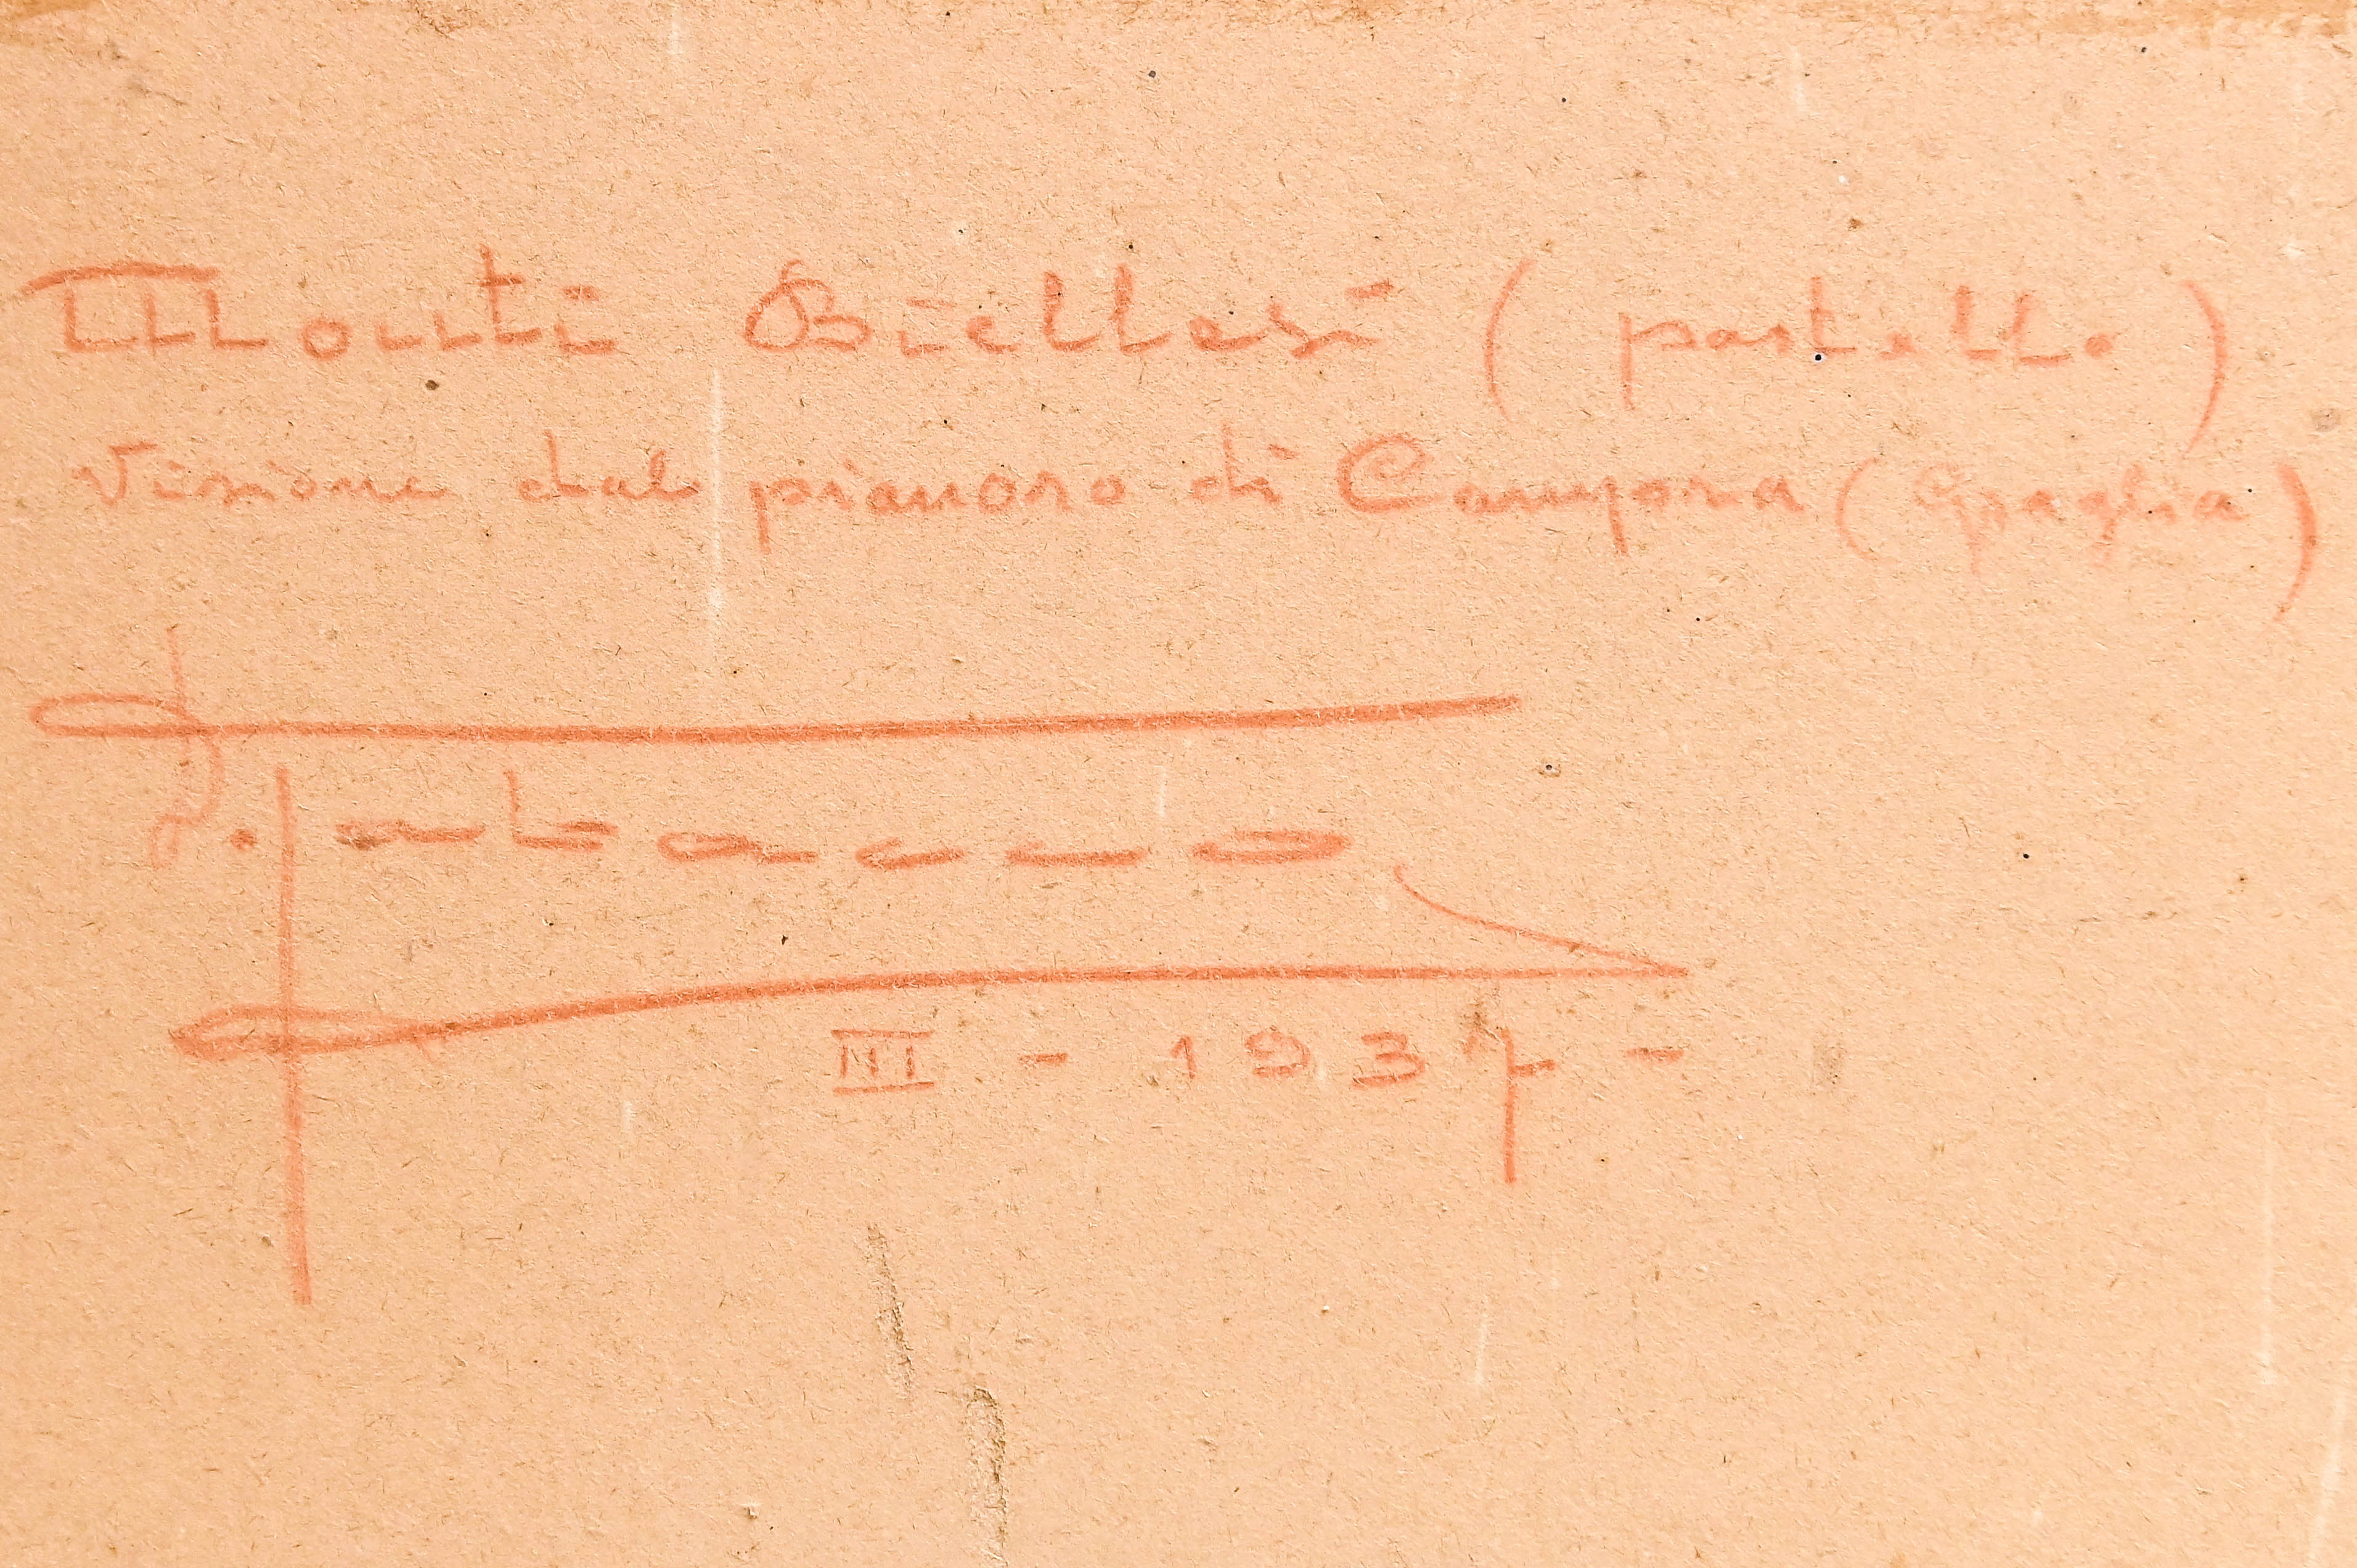 Monti Biellesi ( pastello )
Visione dal pianoro di Campra ( Graglia )
III - 1937 -